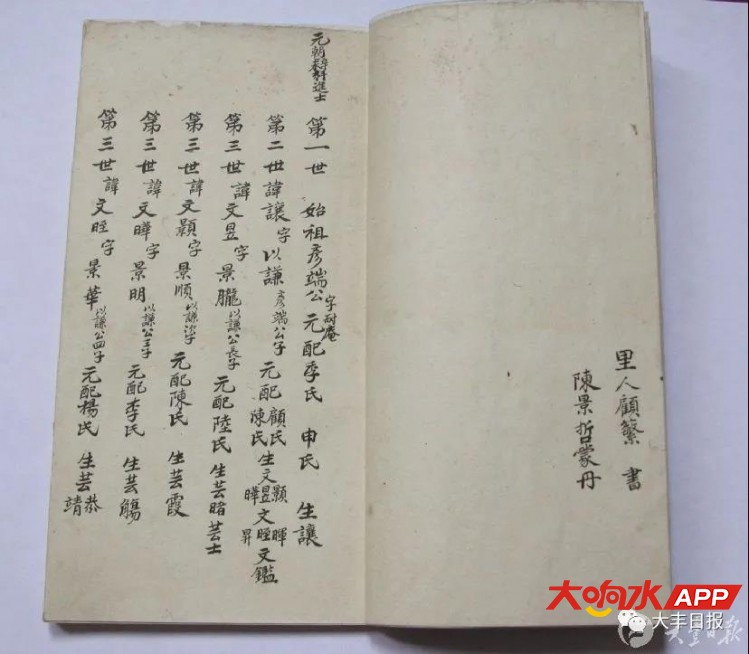 里人顧繁 書
陳景哲蒙丹
元朝辛未科進士
第一世 始祖彥端公 字耐庵 元配季氏 申氏 生讓
第二世諱讓 字以謙 彥端公子 元配顧氏 陳氏 生文昱 文顥 文曄 文暉 文昇 文鑑
第三世諱文昱 字景朧 以謙公長子 元配陸氏 生芸曙 芸士
第三世諱文顥 字景順 以謙次子 元配陳氏 生芸霞
第三世諱文曄 字景明 以謙公三子 元配李氏 生芸觴
第三世諱文暀 字景華 以謙公四子 元配楊氏 生芸恭 靖
大响水APP
大丰日报
大丰日报